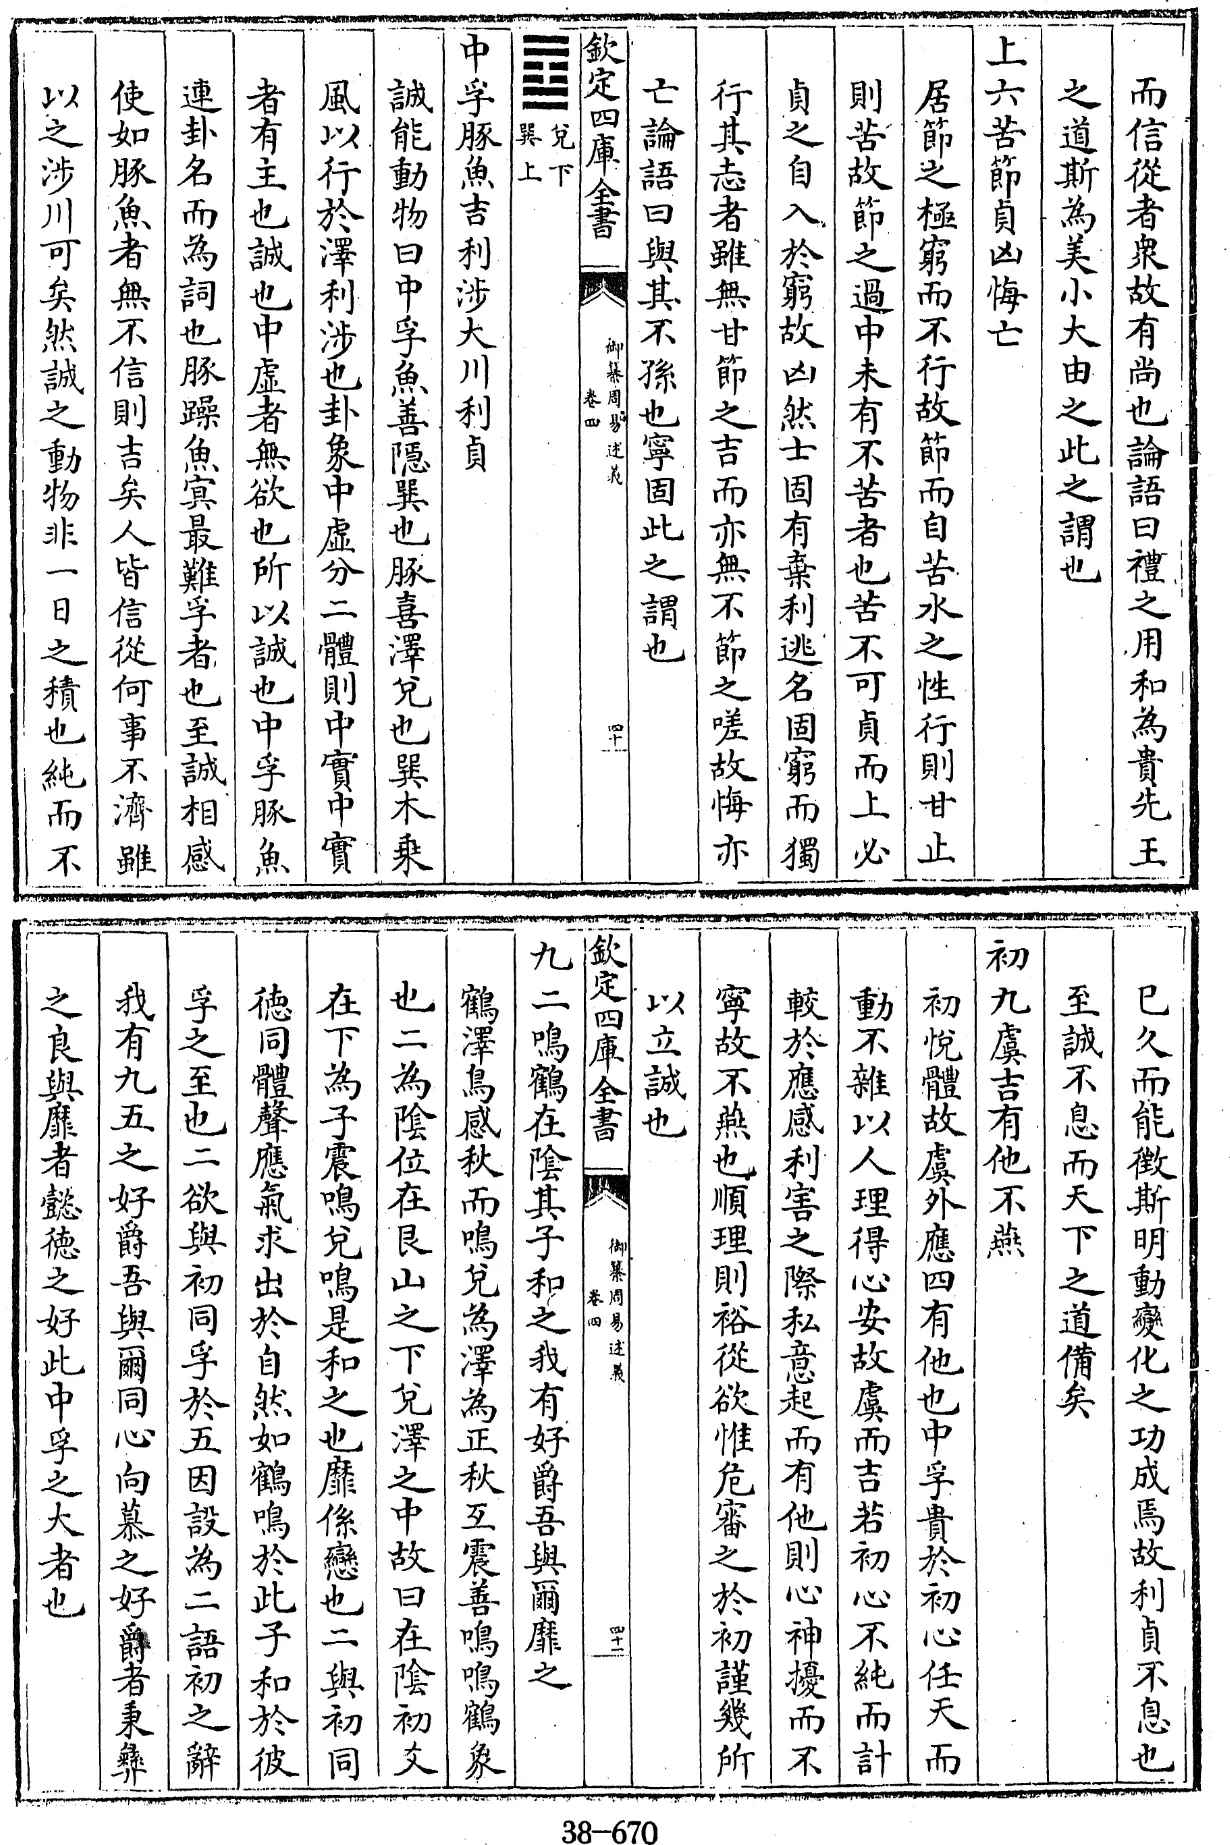 而信從者衆故有尚也論語曰禮之用和為貴先王
之道斯為美小大由之此之謂也
上六苦節貞凶悔亡
居節之極窮而不行故節而自苦水之性行則甘止
則苦故節之過中未有不苦者也苦不可貞而上必
貞之自入於窮故凶然士固有棄利逃名固窮而獨
行其志者雖無甘節之吉而亦無不節之嗟故悔亦
亡論語曰與其不孫也寧固此之謂也
欽定四庫全書
御纂周易述義
卷四
四十
兌下
巽上
中孚豚魚吉利涉大川利貞
誠能動物曰中孚魚善隱巽也豚喜澤兌也巽木乗
風以行於澤利涉也卦象中虛分二體則中實中實
者有主也誠也中虛者無欲也所以誠也中孚豚魚
連卦名而為詞也豚躁魚冥最難孚者也至誠相感
使如豚魚者無不信則吉矣人皆信從何事不濟雖
以之涉川可矣然誠之動物非一日之積也純而不
已久而能徵斯明動變化之功成焉故利貞不息也
至誠不息而天下之道備矣
初九虞吉有他不燕
初悅體故虞外應四有他也中孚貴於初心任天而
動不雜以人理得心安故虞而吉若初心不純而計
較於應感利害之際私意起而有他則心神擾而不
寧故不燕也順理則裕從欲惟危審之於初謹幾所
以立誠也
欽定四庫全書
御纂周易述義
卷四
四十一
九二鳴鶴在陰其子和之我有好爵吾與爾靡之
鶴澤鳥感秋而鳴兌為澤為正秋互震善鳴鳴鶴象
也二為陰位在艮山之下兌澤之中故曰在陰初爻
在下為子震鳴兌鳴是和之也靡係戀也二與初同
德同體聲應氣求出於自然如鶴鳴於此子和於彼
孚之至也二欲與初同孚於五因設為二語初之辭
我有九五之好爵吾與爾同心向慕之好爵者秉彝
之良與靡者懿德之好此中孚之大者也
38-670